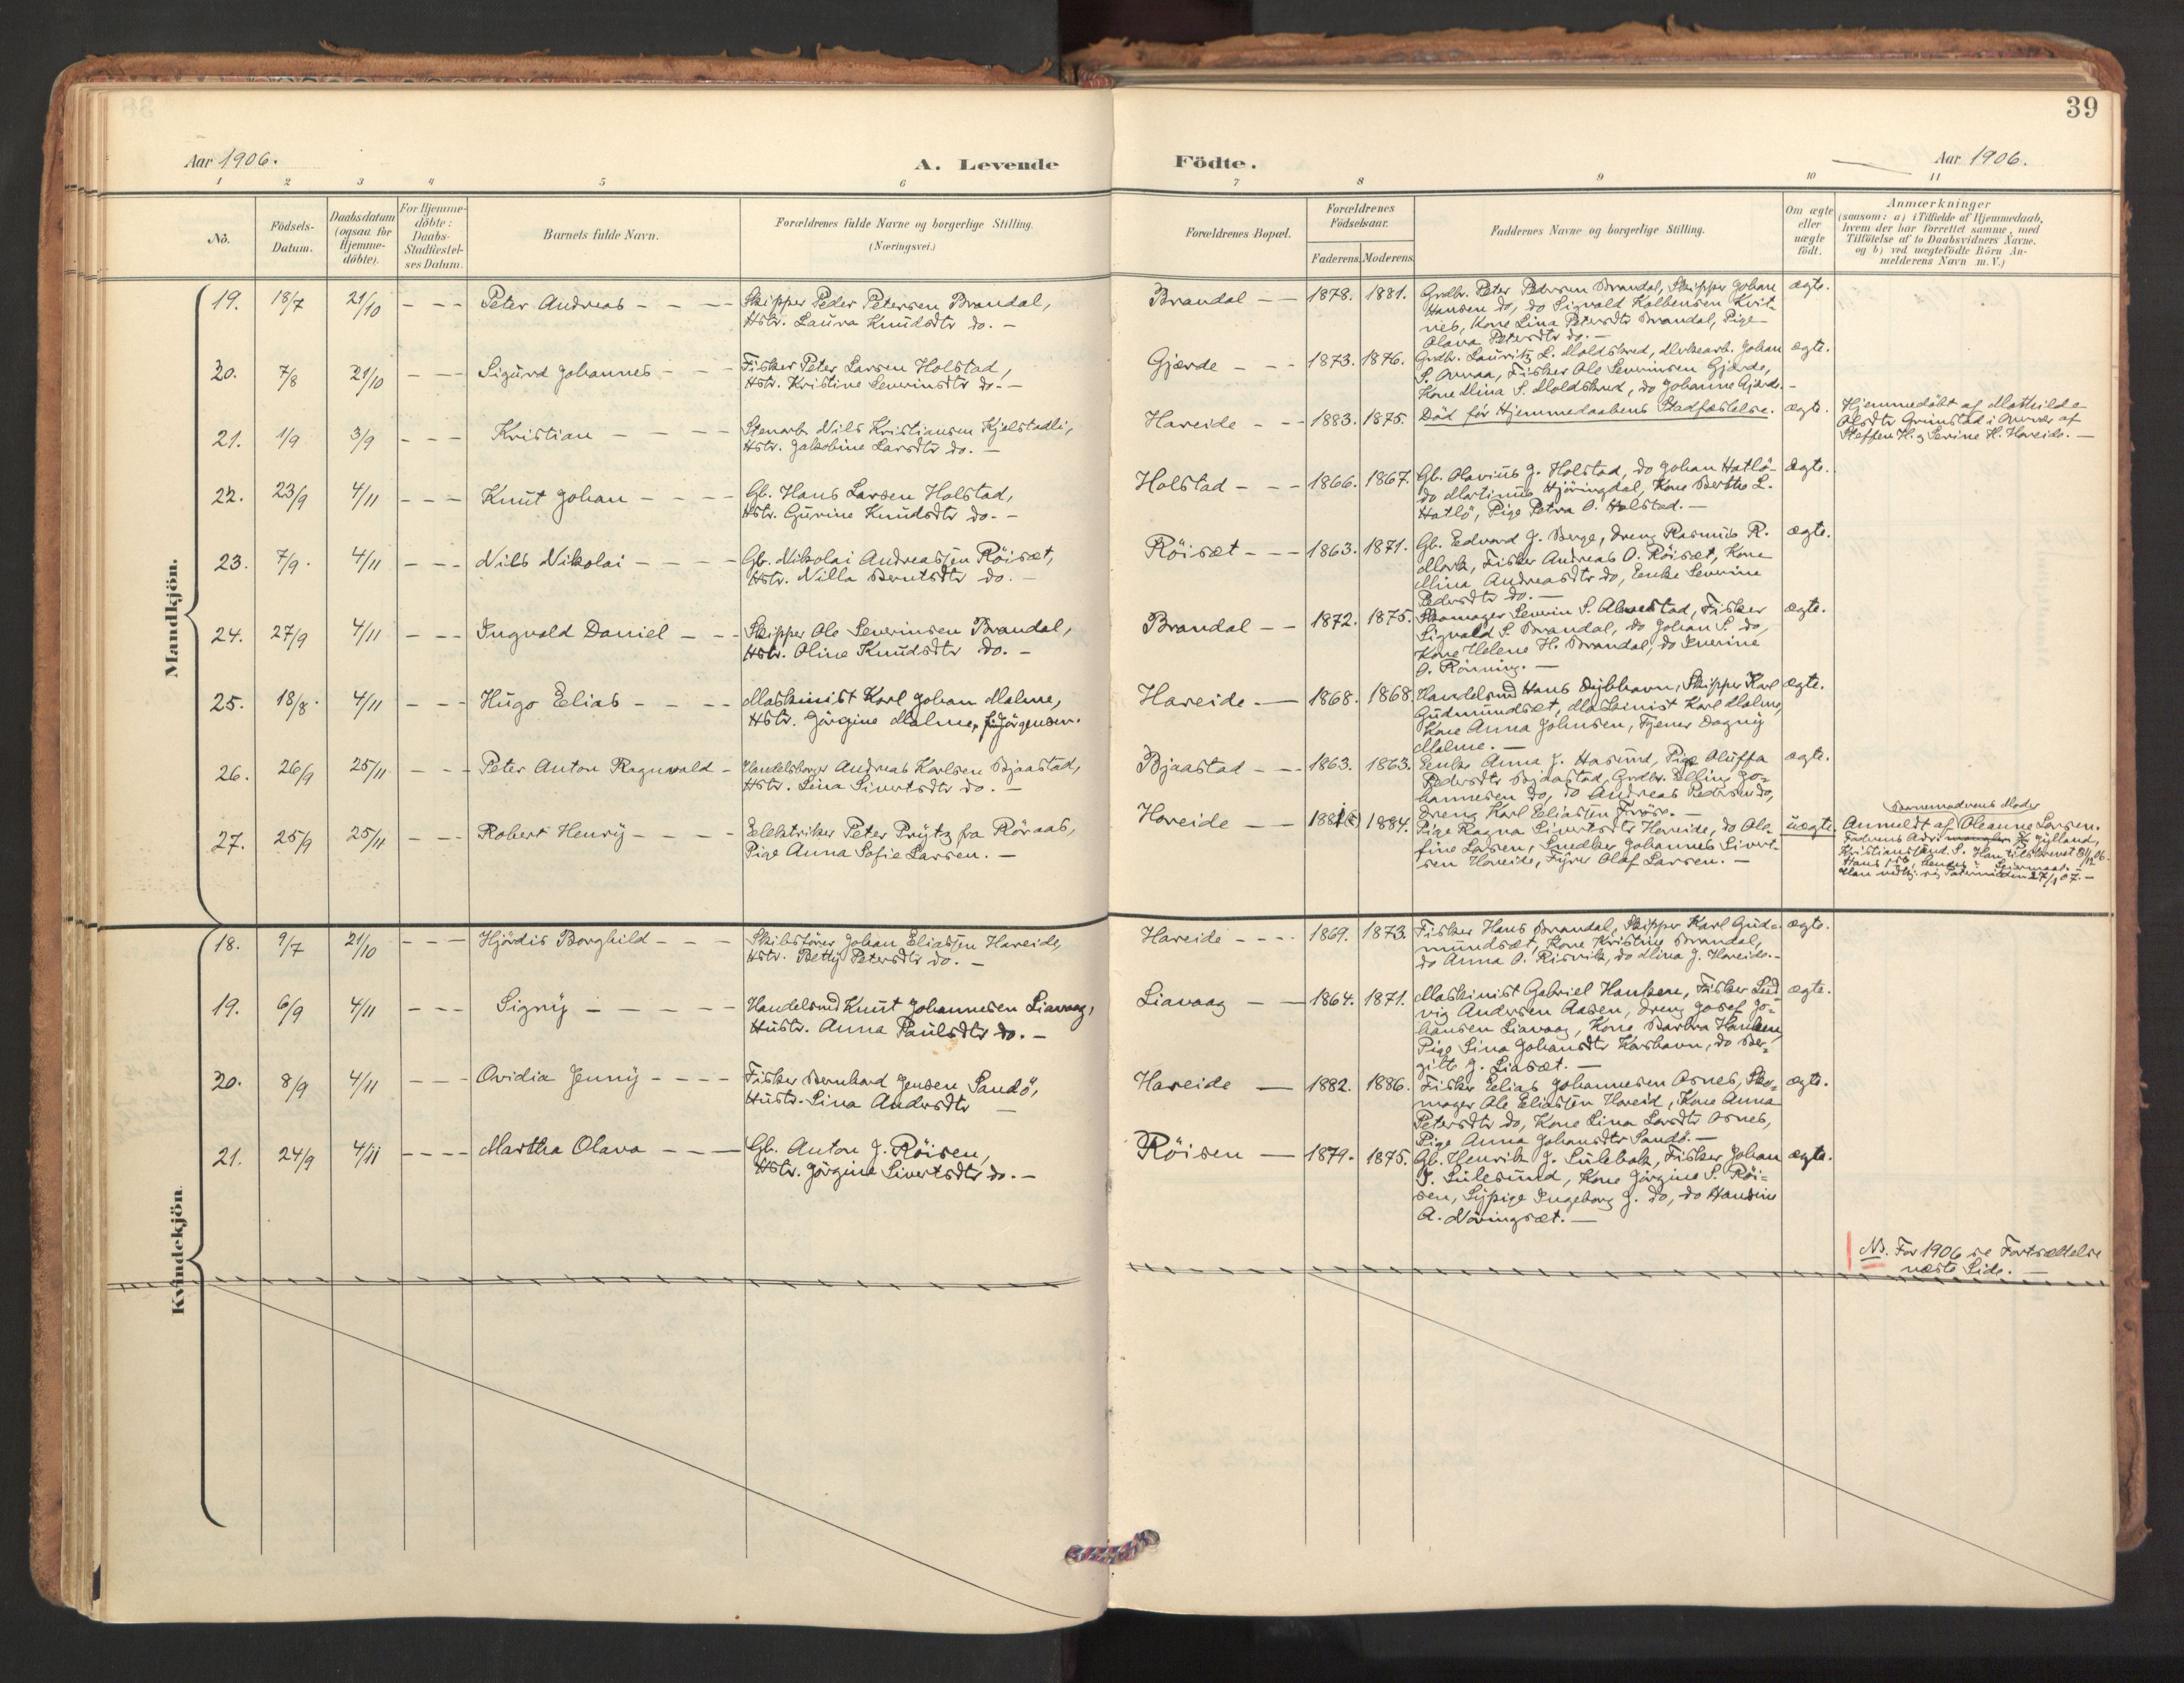 39
Aar 1906.
A. Levende
Födte.
Aar 1906.
1 2 3 4 5 6 7 8 9 10 11
No.
Födsels-
Datum.
Daabsdatum
(ogsaa for
Hjemme-
döbte).
For Hjemme-
döbte:
Daabs-
Stadfæstel-
ses Datum.
Barnets fulde Navn.
Forældrenes fulde Navne og borgerlige Stilling.
(Næringsvei.)
Forældrenes Bopæl.
Forældrenes
Födselsaar.
Faderens. Moderens.
Faddernes Navne og borgerlige Stilling.
Om ægte
eller
uægte
födt.
Anmærkninger
(saasom: a) i Tilfælde af Hjemmedaab,
hvem der har forrettet samme, med
Tilföielse af to Daabsvidners Navne,
og b) ved uægtefödte Börn An-
melderens Navn m. V.)
Mandkjön.
19. 18/7 21/10 - - - Peter Andreas - - - Skipper Peder Petersen Brandal,
Hstr. Laura Knudsdtr do. -
Brandal - - 1878. 1881. Grdbr. Peter Pedersen Brandal, Skipper Johan
Hansen do, do Sigvald Kolbensen Kvit-
nes, Kone Lina Petersdtr Brandal, Pige
Olava Petersdtr do. -
ægte.
20. 7/8 21/10 - - - Sigurd Johannes - - - Fisker Peter Larsen Holstad,
Hstr. Kristine Severinsdtr do. -
Gjærde - - - 1873. 1876. Grdbr. Lauritz L. Moldskred, Johan
S. Overaa, Fisker Ole Severinsen Gjærde,
Kone Mina S. Moldskred, do Johanne Gjærde. -
ægte.
21. 1/9 3/9 - - - Kristian - - - Stenarb. Nils Kristiansen Kjelstadli,
Hstr. Jakobine Larsdtr do. -
Hareide - - - 1883. 1875. Död för Hjemmedaabens Stadfæstelse.
ægte.
Hjemmedöbt af Mathilde
Olsdtr Grimstad i Overvær af
Steffen H. og Severine H. Hareide. -
22. 23/9 4/11 - - - Knut Johan - - - Gb. Hans Larsen Holstad,
Hstr. Gurine Knudsdtr do. -
Holstad - - - 1866. 1867. Gb. Olavius J. Holstad, do Johan Hatlö-
do Martinus Hjöringdal, Kone Berthe L.
Hatlö, Pige Petra O. Holstad. -
ægte.
23. 7/9. 4/11 - - - Nils Nikolai - - - - Gb. Nikolai Andreassen Röisæt,
Hstr. Nilla Berntsdtr do. -
Röisæt - - - 1863. 1871. Gb. Edvard J. Berge, Dreng Rasmus R.
Mork, Fisker Andreas O. Röisæt, Kone
Mina Andreasdtr do, Enke Severine
Pedersdtr do. -
ægte.
24. 27/9 4/11 - - - Ingvald Daniel - - - Skipper Ole Severinsen Brandal,
Hstr. Oline Knudsdtr do. -
Brandal - - 1872. 1875. Skomager Severin S. Alvestad, Fisker
Sigvald S. Brandal, do Johan S. do,
Kone Helene H. Brandal, do Severine
O. Rönning. -
ægte.
25. 18/8. 4/11 - - - Hugo Elias - - - - Maskinist Karl Johan Malme,
Hstr. Jörgine Malme, f. Jörgensen.
Hareide. - 1868. 1868. Handelsmd Hans Dybhavn, Skipper Karl
Gudmundsæt, Maskinist Karl Malme,
Kone Anna Johnsen, Tjener Dagny
Malme. -
ægte.
26. 26/9 25/11 - - - Peter Anton Ragnvald - Handelsborger Andreas Karlsen Bjaastad,
Hstr. Lina Sivertsdtr do. -
Bjaastad - - - 1863. 1863. Enke Anna J. Hasund, Pige Oluffa
Pedersdtr Bjaastad, Grdbr. Elling Jo-
hannesen do, do Andreas Pedersen do,
Dreng Karl Eliassen Frösv. -
ægte.
27. 25/9 25/11 - - - Robert Henry - - - - Elektriker Peter Prytz fra Röraas,
Pige Anna Sofie Larsen. -
Hareide - - 1884. Pige Ragna Sivertsdtr Hareide, do Ole-
fine Larsen, Smedker Johannes Sivert-
sen Hareide, Fyrer Olaf Larsen. -
uægte
Barnemoderens Moder
Anmeldt af Oleanne Larsen.
Kvindekjön
18. 9/7 21/10 - - - Hjördis Borghild - - - Skibsförer Johan Eliassen Hareide,
Hstr. Betty Petersdtr do. -
Hareide - - - - 1869. 1873. Fisker Hans Brandal, Skipper Karl Gud-
mundsæt, Kone Kristine Brandal,
do Anna O. Risvik, do Mina J. Hareide. -
ægte.
19. 6/9 4/11 - - - Signy - - - - - Handelsmd Knut Johannesen Liavaag,
Hustr. Anna Paulsdtr do. -
Liavaag - - 1864. 1871. Maskinist Gabriel Hanken, Fisker Lud-
vig Andersen Aasen, Dreng Josef Jo-
hansen Liavaag, Kone Barbra Hanken,
Pige Lina Johansdtr Kaahavn, do Ber-
gitte J. Liasæt. -
ægte.
20. 8/9 4/11 - - - Ovidia Jenny - - - - Fisker Bernhard Jensen Sandö,
Hustr. Lina Andersdtr -
Hareide - 1882. 1886. Fisker Elias Johannesen Osnes, Sko-
mager Ole Eliassen Hareid, Kone Anna
Petersdtr do, Kone Lina Larsdtr Osnes,
Pige Anna Johansdtr Sandö. -
ægte.
21. 24/9 4/11 - - - - Martha Olava - - - Gb. Anton J. Röisen,
Hstr. Jörgine Sivertsdtr do. -
Röisen - 1879. 1875. Gb. Henrik J. Sulebak, Fisker Johan
J. Sulesund, Kone Jörgine S. Röi-
sen, Sypige Ingeborg J. do, do Hansine
A. Nöringsæt. -
ægte.
NB. For 1906 se Fortsættelse
næste Side. -